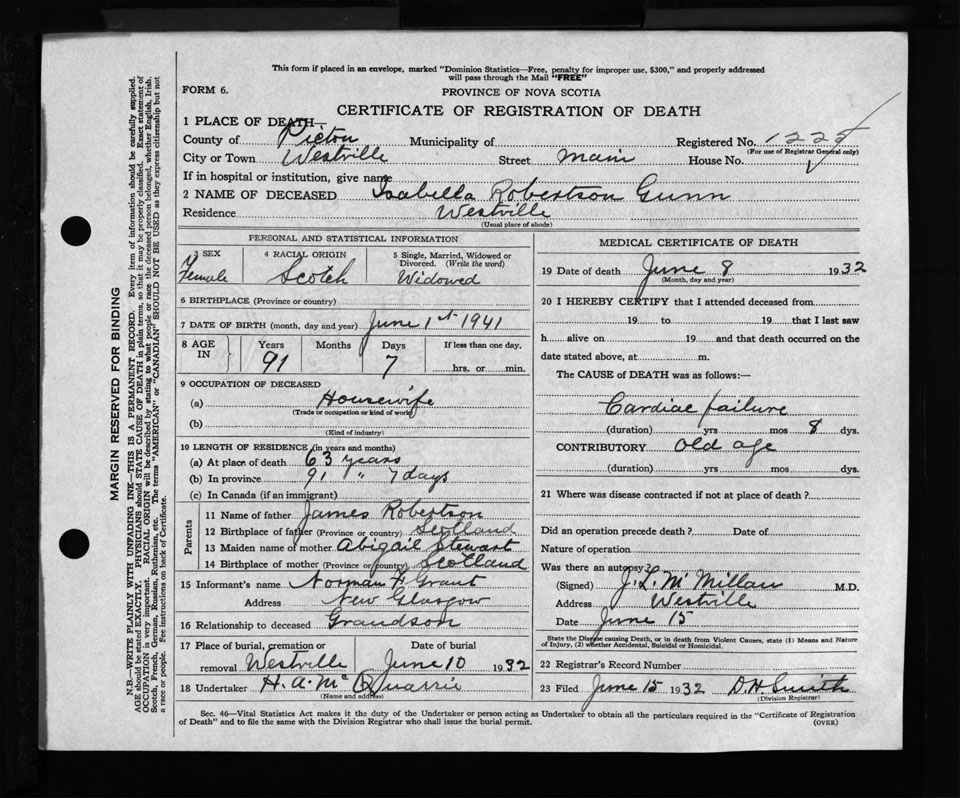 This form if placed in an envelope, marked "Dominion Statistics—Free, penalty for improper use, $300," and properly addressed
will pass through the Mail "FREE"
FORM 6. PROVINCE OF NOVA SCOTIA
CERTIFICATE OF REGISTRATION OF DEATH
1 PLACE OF DEATH—
County of Pictou Municipality of Registered No. 1225
(For use of Registrar General only)
City or Town Westville Street Main House No.
If in hospital or institution, give name
2 NAME OF DECEASED Isabella Robertson Gunn
Residence Westville
(Usual place of abode)
PERSONAL AND STATISTICAL INFORMATION
3 SEX 4 RACIAL ORIGIN 5 Single, Married, Widowed or
Divorced. (Write the word)
Female Scotch Widowed
6 BIRTHPLACE (Province or country)
7 DATE OF BIRTH (month, day and year) June 1st 1941
8 AGE IN Years Months Days If less than one day,
91 7 hrs. or min.
9 OCCUPATION OF DECEASED
(a) Housewife
(Trade or occupation or kind of work)
(b)
(Kind of industry)
10 LENGTH OF RESIDENCE (in years and months)
(a) At place of death 63 years
(b) In province 91 " 7 days
(c) In Canada (if an immigrant)
Parents
11 Name of father James Robertson
12 Birthplace of father (Province or country) Scotland
13 Maiden name of mother Abigail Stewart
14 Birthplace of mother (Province or country) Scotland
15 Informant's name Norman F. Grant
Address New Glasgow
16 Relationship to deceased Grandson
17 Place of burial, cremation or Date of burial
removal Westville June 10 1932
18 Undertaker H. A. McQuarrie
(Name and address)
MEDICAL CERTIFICATE OF DEATH
19 Date of death June 8 1932
(Month, day and year)
20 I HEREBY CERTIFY that I attended deceased from
19 to 19 that I last saw
h alive on 19 and that death occurred on the
date stated above, at m.
The CAUSE of DEATH was as follows:—
Cardiac failure
(duration) yrs mos 8 dys.
CONTRIBUTORY Old age
(duration) yrs mos dys.
21 Where was disease contracted if not at place of death?
Did an operation precede death? Date of
Nature of operation
Was there an autopsy?
(Signed) J. L. McMillan M.D.
Address Westville
Date June 15
State the Disease causing Death, or in death from Violent Causes, state (1) Means and Nature
of Injury, (2) whether Accidental, Suicidal or Homicidal.
22 Registrar's Record Number
23 Filed June 15 1932 D. H. Smith
(Division Registrar)
Sec. 46—Vital Statistics Act makes it the duty of the Undertaker or person acting as Undertaker to obtain all the particulars required in the "Certificate of Registration
of Death" and to file the same with the Division Registrar who shall issue the burial permit. (OVER)
MARGIN RESERVED FOR BINDING
N.B.—WRITE PLAINLY WITH UNFADING INK—THIS IS A PERMANENT RECORD. Every item of information should be carefully supplied.
AGE should be stated EXACTLY. PHYSICIANS should STATE CAUSE OF DEATH in plain terms, so that it may be properly classified. Exact statement of
OCCUPATION is very important. RACIAL ORIGIN will be described by stating to what people or race the deceased person belonged, whether English, Irish,
Scotch, French, German, Russian, Ruthenian, etc. The terms "AMERICAN" or "CANADIAN" SHOULD NOT BE USED as they express citizenship but not
a race or people. See instructions on back of Certificate.